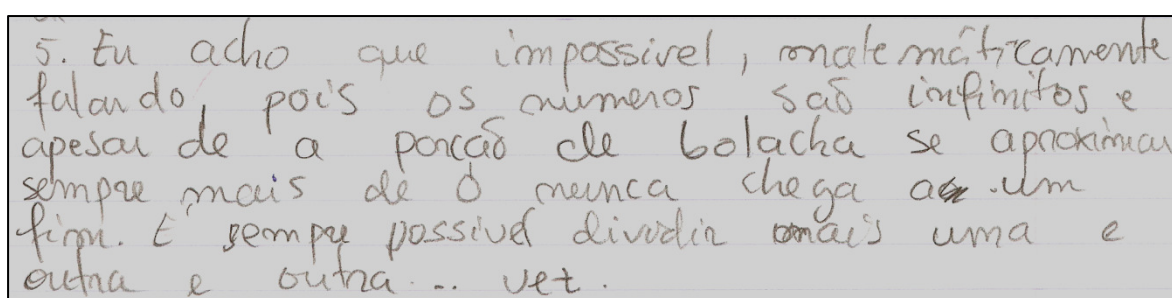 5. Eu acho que impossivel, matemáticamente
falando, pois os números são infinitos e
apesar de a porção de bolacha se aproximar
sempre mais de 0 nunca chega a um
fim. É sempre possivel dividir mais uma e
outra e outra... vez.